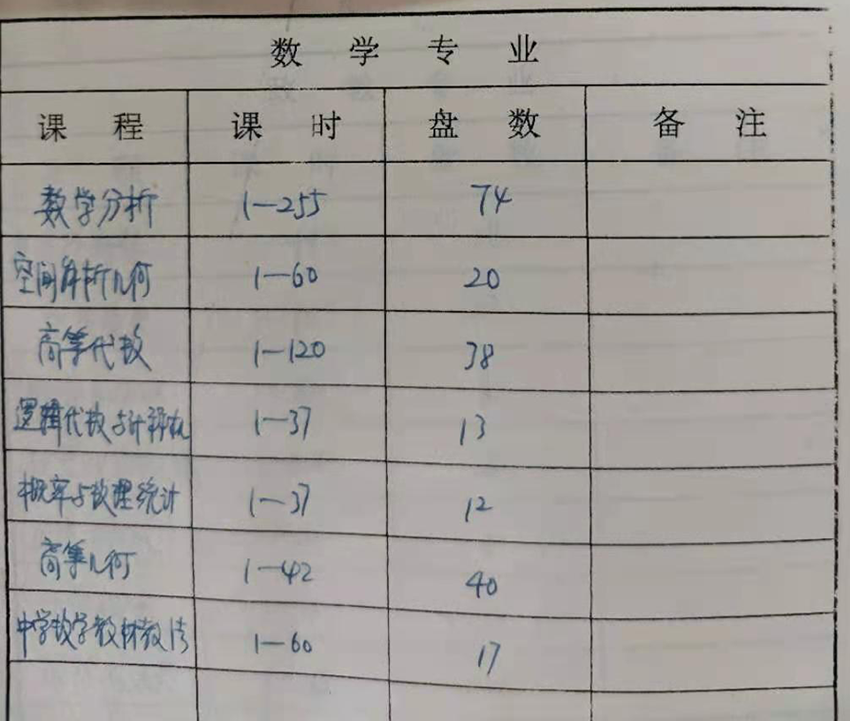 数学专业
课程 课时 盘数 备注
数学分析 1—255 74
空间解析几何 1—60 20
高等代数 1—120 38
逻辑代数与计算机 1—37 13
概率与数理统计 1—37 12
高等几何 1—42 40
中学数学教材教法 1—60 17